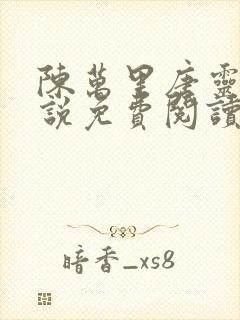 陳萬里唐靈
說免費閱讀
暗香_xs8